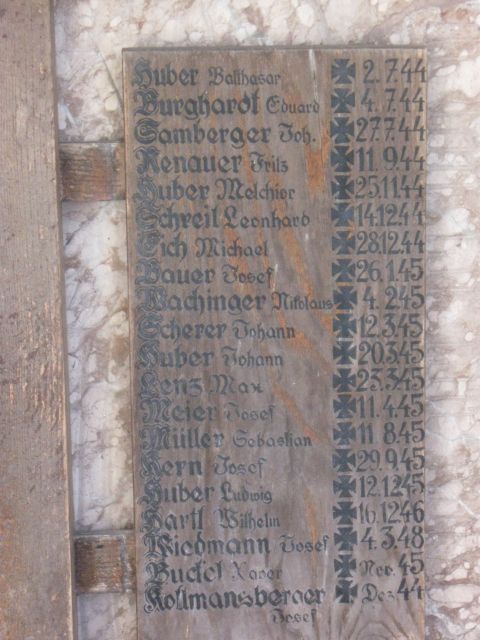 Huber Balthasar ✠ 2.7.44
Burghardt Eduard ✠ 4.7.44
Samberger Joh. ✠ 27.7.44
Renauer Fritz ✠ 11.9.44
Huber Melchior ✠ 25.11.44
Schreil Leonhard ✠ 14.12.44
Eich Michael ✠ 28.12.44
Bauer Josef ✠ 26.1.45
Wachinger Nikolaus ✠ 4.2.45
Scherer Johann ✠ 12.3.45
Huber Johann ✠ 20.3.45
Lenz Max ✠ 23.3.45
Meier Josef ✠ 11.4.45
Müller Sebastian ✠ 11.8.45
Kern Josef ✠ 29.9.45
Huber Ludwig ✠ 12.12.45
Hartl Wilhelm ✠ 16.12.46
Wiedmann Josef ✠ 4.3.48
Buckel Xaver ✠ Nov. 45
Kollmansberger ✠ Dez 44
Josef